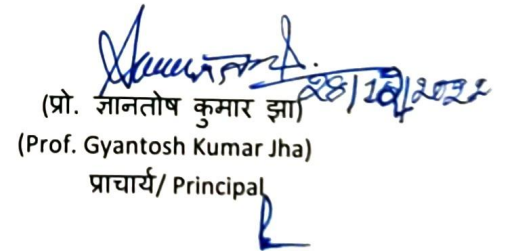 28/12/2022
(प्रो. ज्ञानतोष कुमार झा)
(Prof. Gyantosh Kumar Jha)
प्राचार्य/ Principal